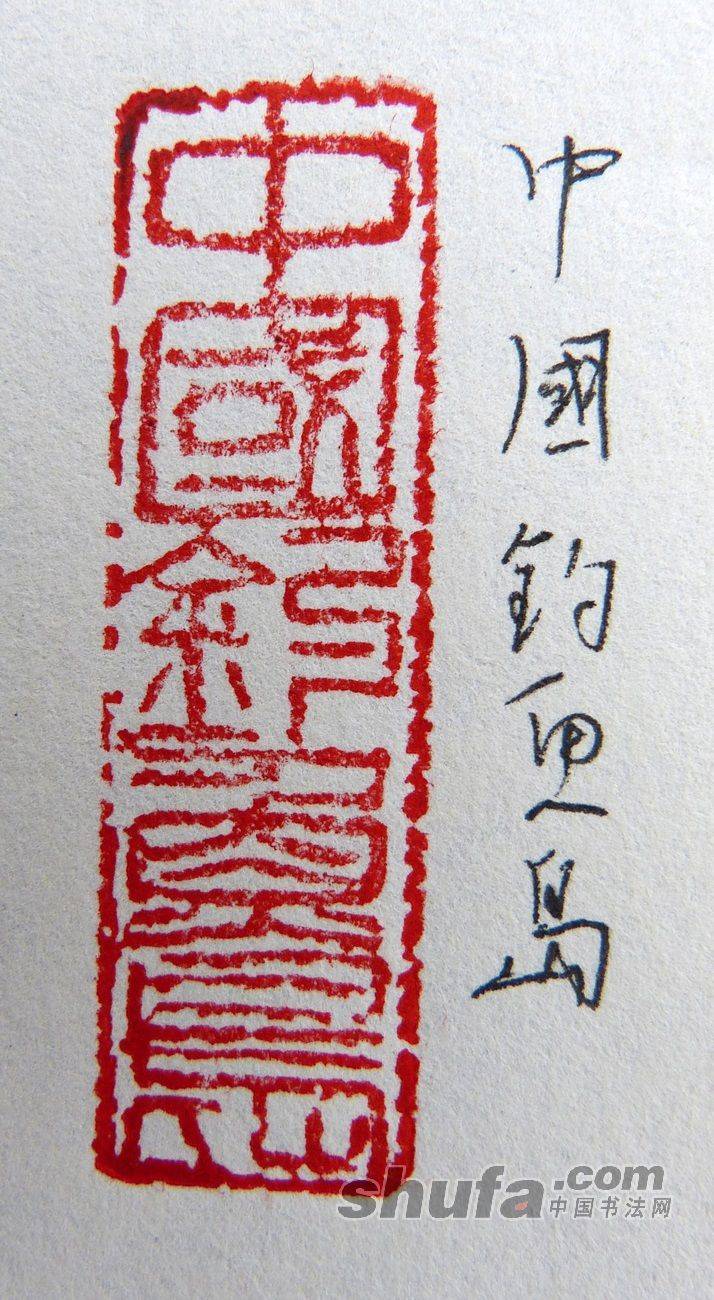 中國釣魚島
中國釣魚島
shufa.com
中国书法网